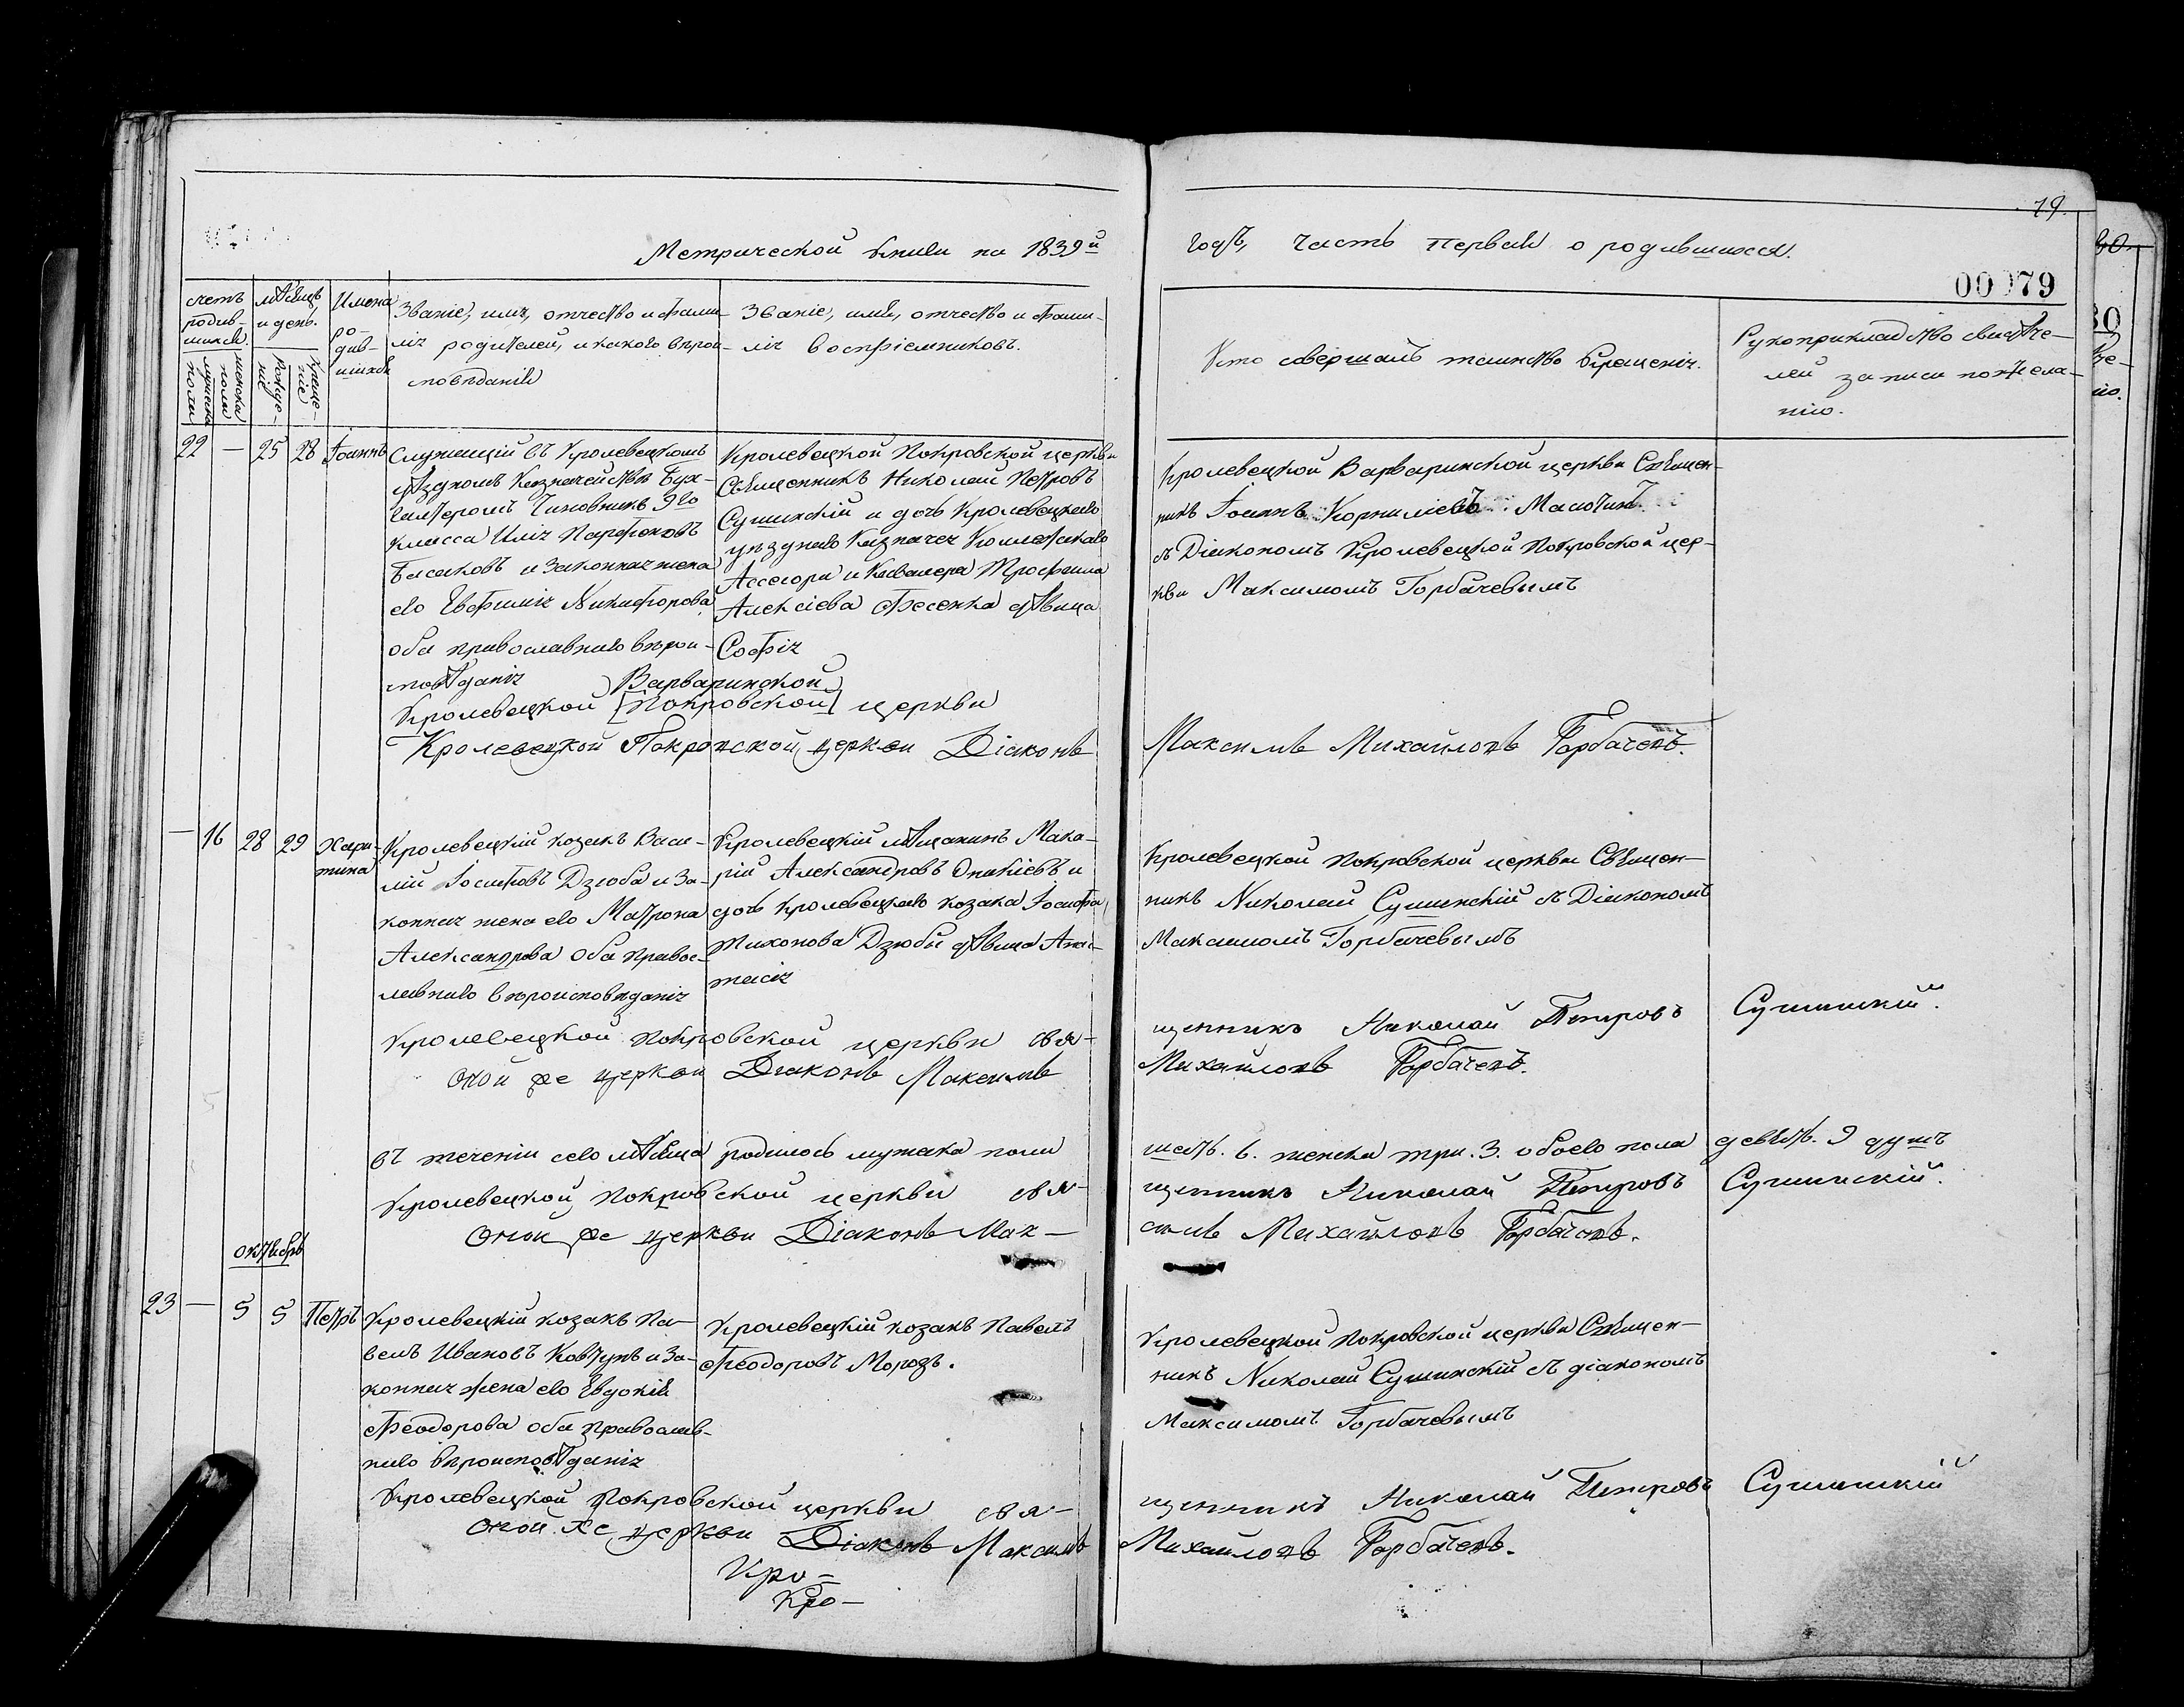 79.
Метрической книги на 1839й
годъ, часть первая о родившихся.
00079
счетъ родив-
шихся.
мужеска пола
женска пола
мѣсяцъ и день.
Рожде-
ніе
Креще-
ніе
Имена ро-
див-
шихся
Званіе, имя, отчество и фами-
лія родителей, и какого вѣрои-
повѣданія
Званіе, имя, отчество и фами-
лія воспріемниковъ.
Кто совершалъ таинство крещенія.
Рукоприкладство свидѣте-
лей записи по жела-
нію.
22 — 25 28 Іоаннъ
Служащій въ Кролевецкомъ
уѣздномъ Казначействѣ Бух-
галтеромъ Чиновникъ 9го
класса Илія Парфеновъ
и законная жена
его Евфимія Никифорова
оба православнаго вѣрои-
повѣданія
Кролевецкой Покровской церкви
Священникъ Николай Петровъ
Сушинскій и дочь Кролевецкаго
уѣзднаго Казначея Коллежскаго
Ассесора и Кавалера Трофима
Алексіева Фесенка дѣвица
Софія
Кролевецкой Варваринской церкви Священ-
никъ Іоаннъ Корниліевъ
съ Діакономъ Кролевецкой Покровской цер-
кви Максимомъ Горбачевымъ
Варваринской
Кролевецкой [Покровской] церкви
Кролевецкой Покровской церкви Діаконъ
Максимъ Михайловъ Горбачевъ.
— 16 28 29 Хари-
тина
Кролевецкій козакъ Васи-
лій Іосифовъ Дзюба и за-
конная жена его Матрона
Александрова оба право-
славнаго вѣроисповѣданія
Кролевецкій мѣщанинъ Мака-
рій Александровъ и
дочь Кролевецкаго козака Іосифа
Тихонова Дзюбы дѣвица Анас-
тасія
Кролевецкой Покровской церкви Священ-
никъ Николай Сушинскій съ Діакономъ
Максимомъ Горбачевымъ
Кролевецкой Покровской церкви свя-
щенникъ Николай Петровъ Сушинскій.
Оной же церкви Діаконъ Максимъ
Михайловъ Горбачевъ.
Въ теченіи сего мѣсяца родилось мужеска пола
шесть. 6. женска три. 3. обоего пола девять. 9 душъ
Кролевецкой Покровской церкви свя-
щенникъ Николай Петровъ Сушинскій.
Оной же церкви Діаконъ Мак-
симъ Михайловъ Горбачевъ.
октябрь
23 — 5 5 Петръ
Кролевецкій козакъ Па-
велъ Ивановъ Ковтунъ и за-
конная жена его Евдокія
Феодорова оба православ-
наго вѣроисповѣданія
Кролевецкій козакъ Павелъ
Феодоровъ Морозъ.
Кролевецкой Покровской церкви Священ-
никъ Николай Сушинскій съ діакономъ
Максимомъ Горбачевымъ
Кролевецкой Покровской церкви свя-
щенникъ Николай Петровъ Сушинскій
Оной же церкви Діаконъ Максимъ
Михайловъ Горбачевъ.
Кро-
Кро-